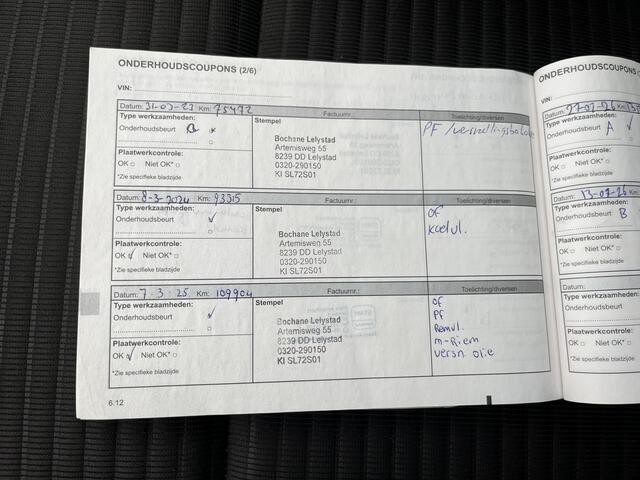 ONDERHOUDSCOUPONS (2/6)
VIN:
Datum: 31-03-23 Km: 75472 Factuurnr.: Toelichting/diversen
Type werkzaamheden:
Onderhoudsbeurt
Plaatwerkcontrole:
OK □ Niet OK* □
*Zie specifieke bladzijde
Stempel
Bochane Lelystad
Artemisweg 55
8239 DD Lelystad
0320-290150
KI SL72S01
PF /
Datum: 8-3-2024 Km: 93315 Factuurnr.: Toelichting/diversen
Type werkzaamheden:
Onderhoudsbeurt √
Plaatwerkcontrole:
OK √ Niet OK* □
*Zie specifieke bladzijde
Stempel
Bochane Lelystad
Artemisweg 55
8239 DD Lelystad
0320-290150
KI SL72S01
OF
Koelvl.
Datum: 7-3-25 Km: 109904 Factuurnr.: Toelichting/diversen
Type werkzaamheden:
Onderhoudsbeurt √
Plaatwerkcontrole:
OK √ Niet OK* □
*Zie specifieke bladzijde
Stempel
Bochane Lelystad
Artemisweg 55
8239 DD Lelystad
0320-290150
KI SL72S01
OF
PF
Remvl.
m-Riem
versn olie
6.12
ONDERHOUDSCOUPONS
VIN:
Datum: Km:
Type werkzaamheden:
Onderhoudsbeurt A √
Plaatwerkcontrole:
OK □ Niet OK* □
*Zie specifieke bladzijde
Datum: 13-07-26 Km
Type werkzaamheden:
Onderhoudsbeurt B
Plaatwerkcontrole:
OK □ Niet OK* □
*Zie specifieke bladzijde
Datum:
Type werkzaamheden:
Onderhoudsbeurt
Plaatwerkcontrole:
OK □ Niet OK* □
*Zie specifieke bladzijde